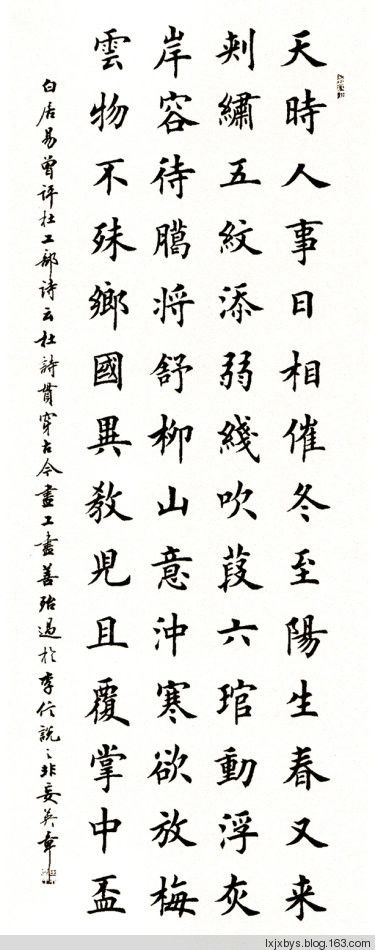 天時人事日相催冬至陽生春又来
刺繡五紋添弱綫吹葭六琯動浮灰
岸容待臈将舒柳山意沖寒欲放梅
雲物不殊鄉國異教兒且覆掌中盃
白居易曾评杜工部诗云杜詩貫穿古今盡工盡善殆過於李信說之非妄英章
lxjxbys.blog.163.com